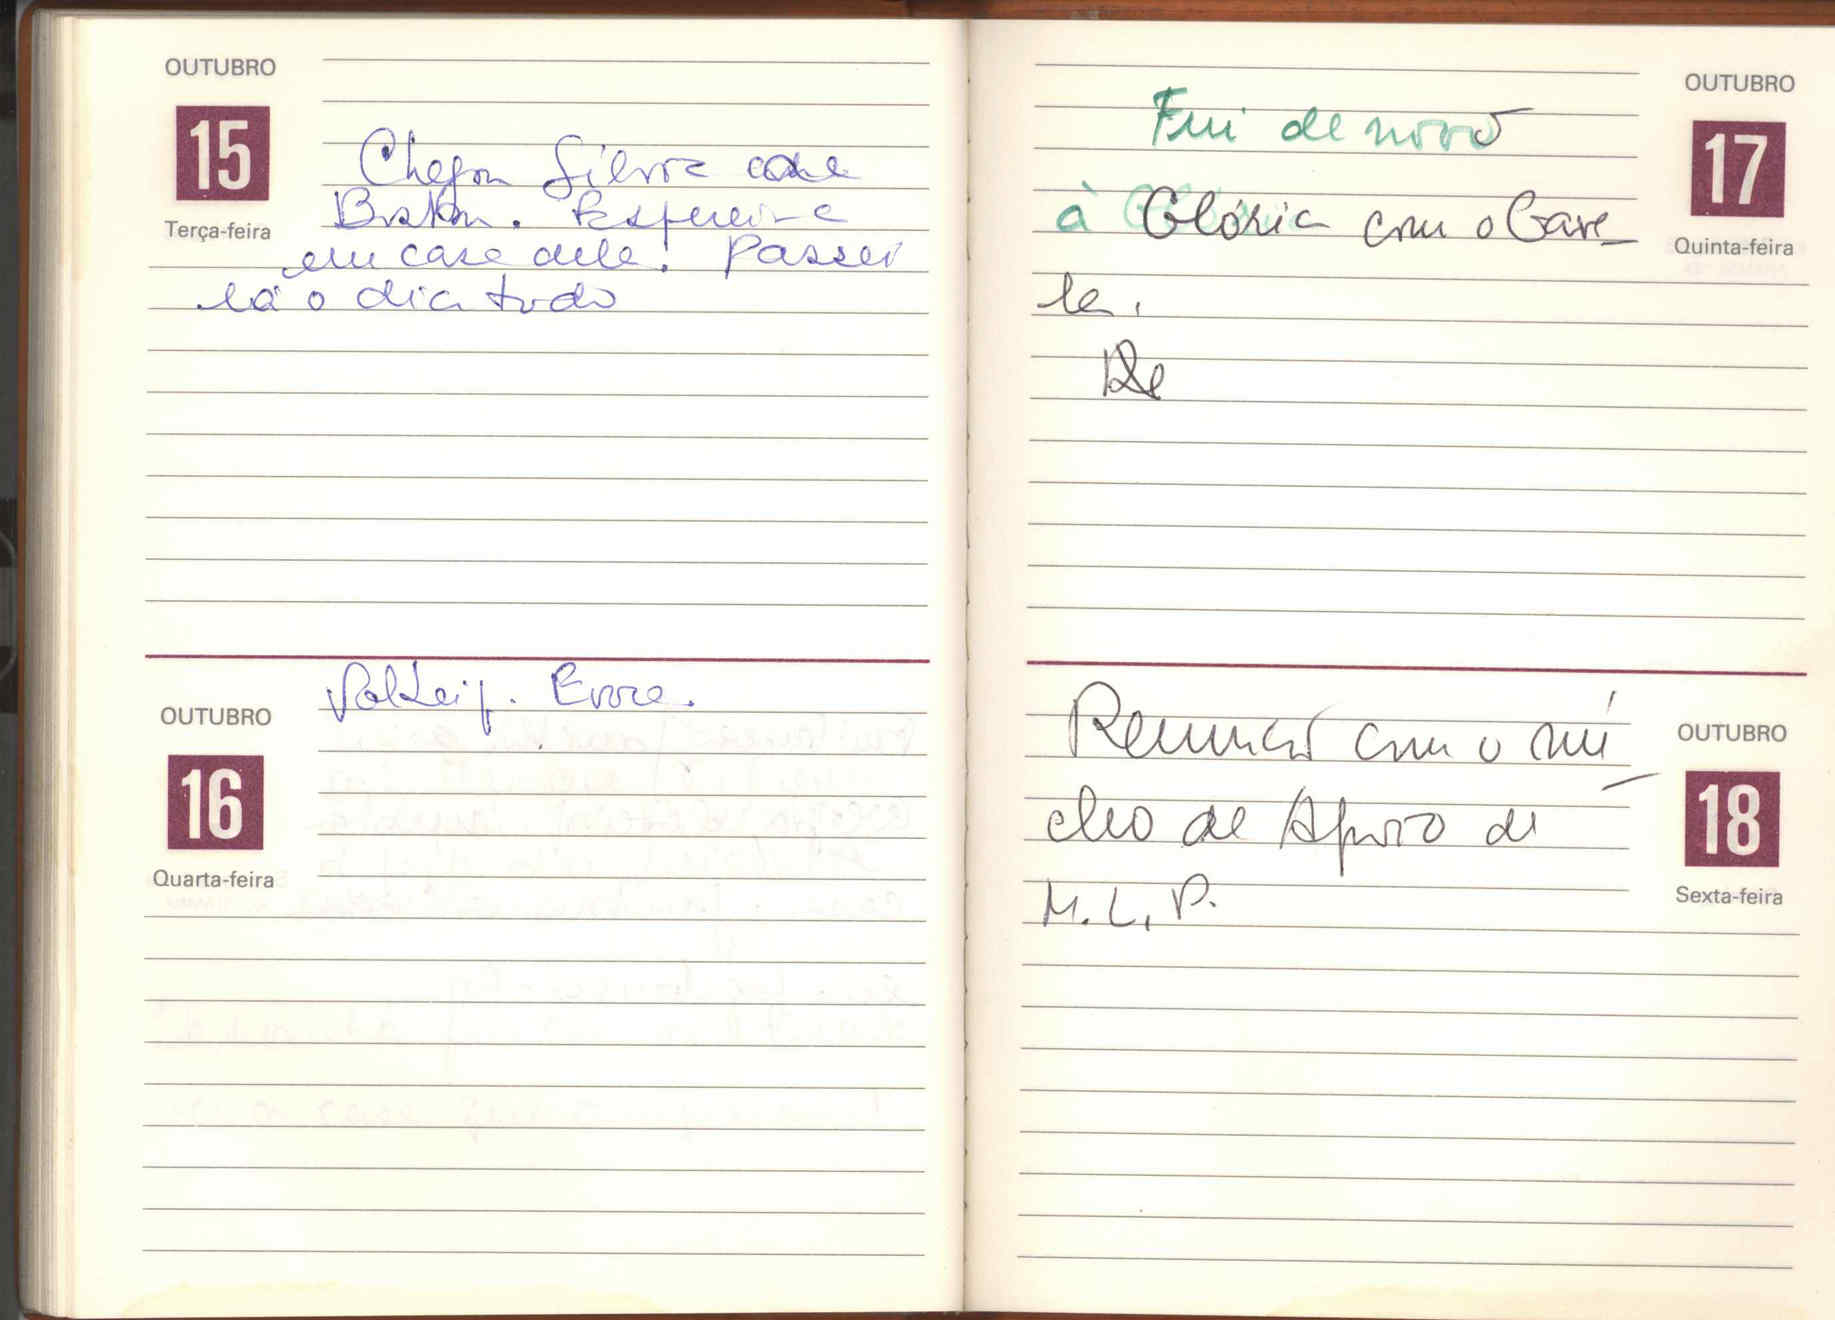 OUTUBRO
15
Terça-feira
Chegou Silvia
Esperei-a
em casa dele! Passei
lá o dia todo
OUTUBRO
16
Quarta-feira
Voltei p. Evora.
OUTUBRO
17
Quinta-feira
Fui de novo
à Glória com o Gare-
la.
OUTUBRO
18
Sexta-feira
Reunião com o nú
cleo de Apoio de
M. L. P.